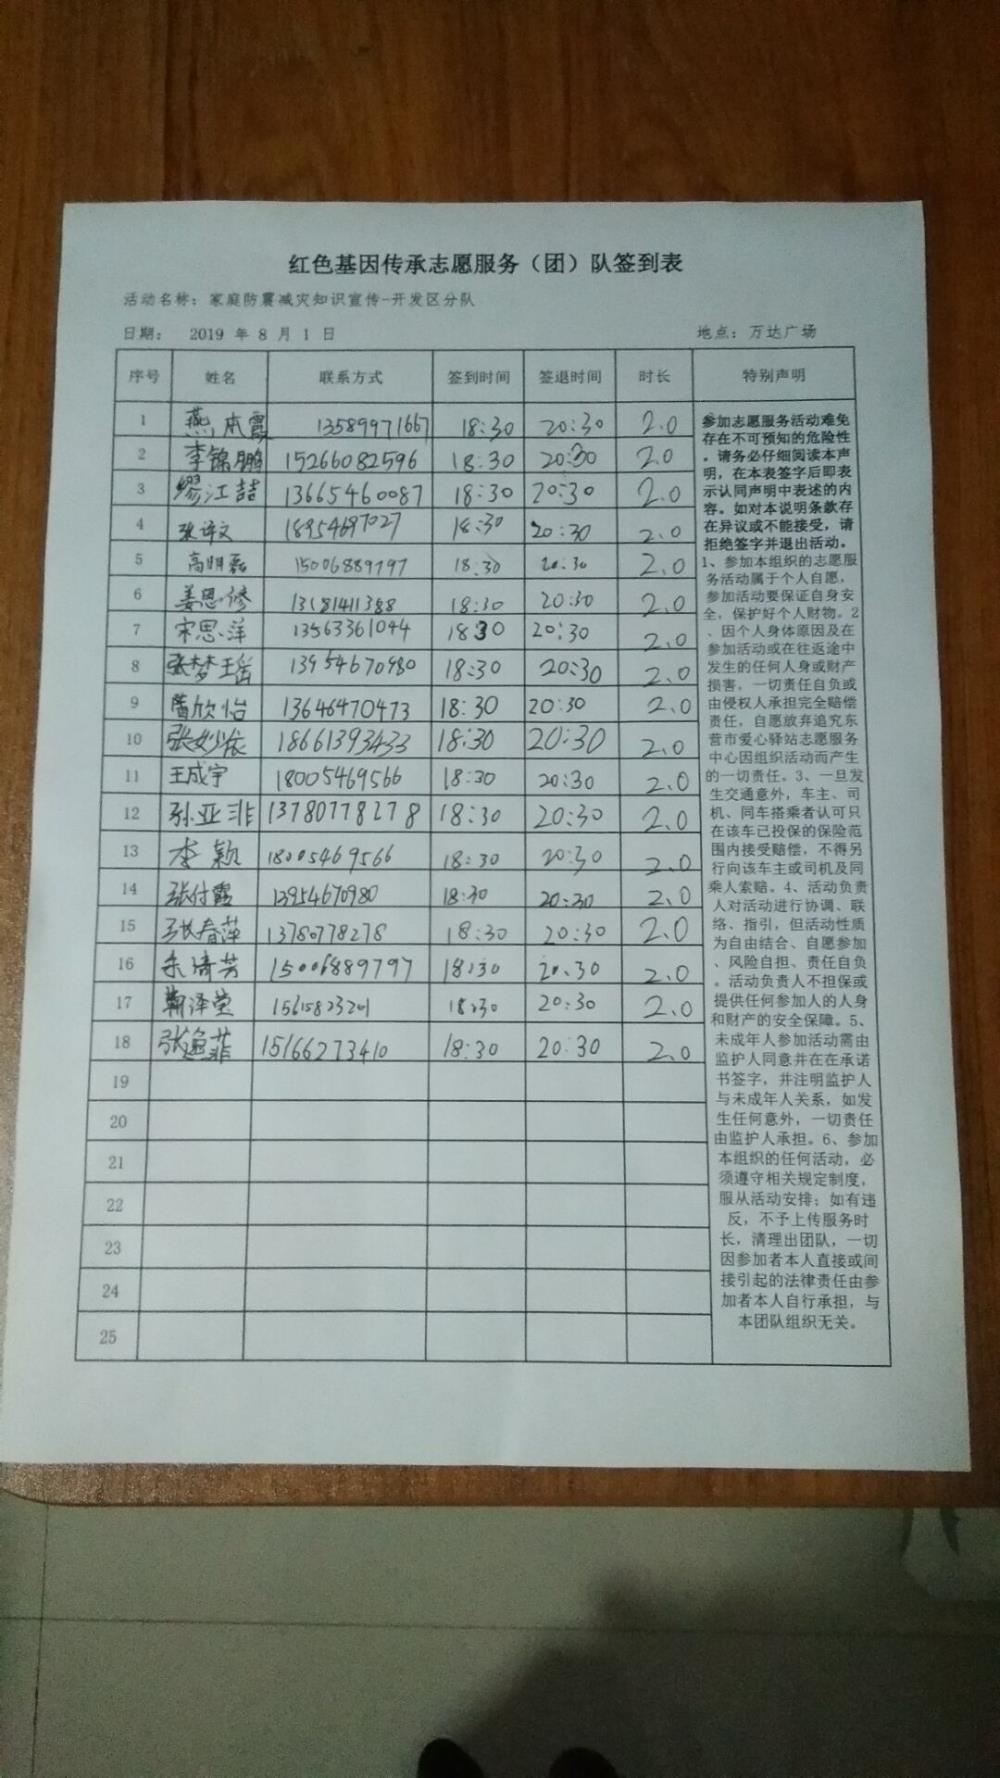 红色基因传承志愿服务（团）队签到表
活动名称：家庭防震减灾知识宣传-开发区分队
日期： 2019 年 8 月 1 日 地点：万达广场
序号 姓名 联系方式 签到时间 签退时间 时长 特别声明
1 燕本霞 13589971667 18:30 20:30 2.0
2 李锦鹏 15266082596 18:30 20:30 2.0
3 缪江喆 13665460087 18:30 20:30 2.0
4 张译文 18954697027 18:30 20:30 2.0
5 高明磊 15006889797 18:30 20:30 2.0
6 姜思谚 13181411388 18:30 20:30 2.0
7 宋思洋 13563361044 18:30 20:30 2.0
8 张梦瑶 13954670980 18:30 20:30 2.0
9 欣怡 13646470473 18:30 20:30 2.0
10 张妙依 18661393433 18:30 20:30 2.0
11 王成宇 18005469566 18:30 20:30 2.0
12 孙亚非 13780778278 18:30 20:30 2.0
13 李颖 18005469566 18:30 20:30 2.0
14 张付霞 13954670980 18:30 20:30 2.0
15 张春萍 13780778278 18:30 20:30 2.0
16 余清芳 15006889797 18:30 20:30 2.0
17 泽莹 15615823201 18:30 20:30 2.0
18 张逸菲 15166273410 18:30 20:30 2.0
19
20
21
22
23
24
25
参加志愿服务活动难免
存在不可预知的危险性
，请务必仔细阅读本声
明，在本表签字后即表
示认同声明中表述的内
容。如对本说明条款存
在异议或不能接受，请
拒绝签字并退出活动。
1、参加本组织的志愿服
务活动属于个人自愿，
参加活动要保证自身安
全，保护好个人财物。2
、因个人身体原因及在
参加活动或在往返途中
发生的任何人身或财产
损害，一切责任自负或
由侵权人承担完全赔偿
责任，自愿放弃追究东
营市爱心驿站志愿服务
中心因组织活动而产生
的一切责任。3、一旦发
生交通意外，车主、司
机、同车搭乘者认可只
在该车已投保的保险范
围内接受赔偿，不得另
行向该车主或司机及同
乘人索赔。4、活动负责
人对活动进行协调、联
络、指引，但活动性质
为自由结合、自愿参加
、风险自担、责任自负
。活动负责人不担保或
提供任何参加人的人身
和财产的安全保障。5、
未成年人参加活动需由
监护人同意并在在承诺
书签字，并注明监护人
与未成年人关系，如发
生任何意外，一切责任
由监护人承担。6、参加
本组织的任何活动，必
须遵守相关规定制度，
服从活动安排；如有违
反，不予上传服务时
长，清理出团队，一切
因参加者本人直接或间
接引起的法律责任由参
加者本人自行承担，与
本团队组织无关。